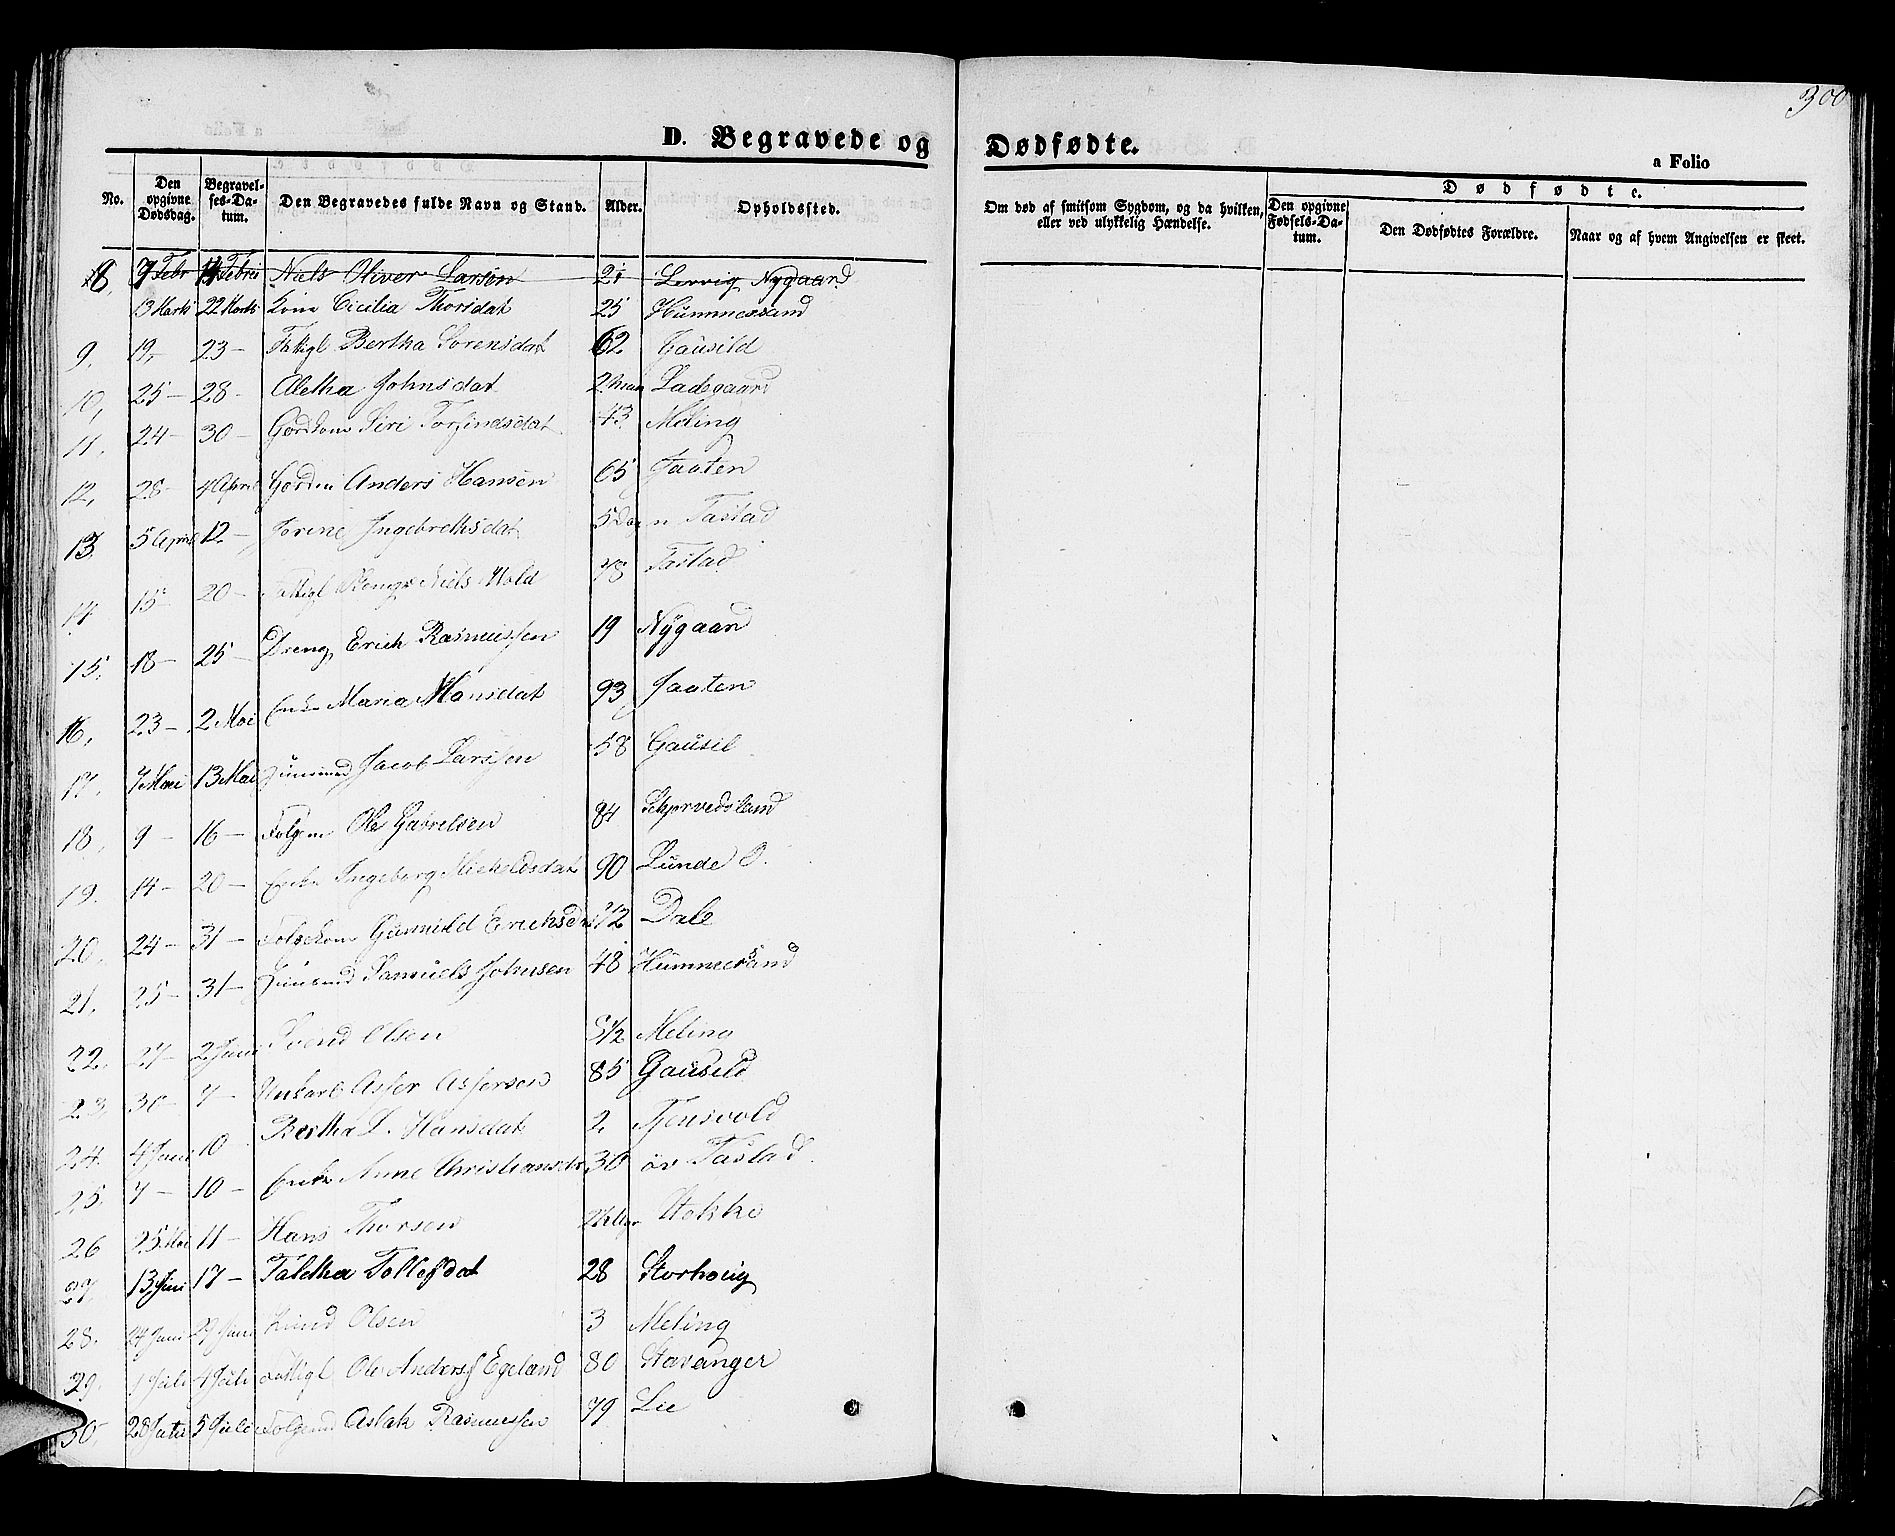 300
D. Begravede og Dødfødte.
a Folio
No. Den opgivne Dødsdag. Begravelses-Datum. Den Begravedes fulde Navn og Stand. Alder. Opholdssted. Om død af smitsom Sygdom, og da hvilken, eller ved ulykkelig Hændelse. Dødfødte. Den opgivne Fødsels-Datum. Den Dødfødtes Forældre. Naar og af hvem Angivelsen er skeet.
8, 7 Febr 14 Febri Niels Oliver Larsen 21 Lervig Nygaard
13 Marts 22 Marts Kone Cicilia Thorsdat 25 Hummersand
9. 19, 23 - Fattigl Bertha Sørensdat 62 Gausild
10, 25 - 28 - Aletha Johnsdat 2 Ladegaard
11. 24 - 30 - Gdrkone Siri Torfindsdat 43 Meling
12, 28 - 4 April Gdrm Anders Hansen 65 Jaaten
13. 5 April 12. - Jorine Ingebrethsdat 5 Dagn Tastad
14. 15 - 20 - Fattigl Niels Hold 78 Tastad
15. 18 - 25 - Dreng Erich Rasmussen 19 Nÿgaard
16, 23 - 2 Mai Enke Maria Monsdat 93 Jaaten
17. 7 Mai 13 Mai Huusmd Jacob Larssen 58 Gausil
18, 9 - 16 - Folgem Ole Gabrelsen 84
19. 14 - 20 - Enke Ingeborg 90 Lunde O.
20. 24 - 31 - Folgekone Gunnild Erichsd 72 Dale
21. 25 - 31 - Huusmd Samuels Johnsen 48 Hummersand
22. 27 - 2 Juni Svend Olsen 5 1/2 Meling
23, 30 - 7 - Unkarl Asser Assersen 85 Gausild
24. 4 Juni 10 - Bertha L. Hansdat 2 Tjensvold
25. 7 - 10 - Enke Anne Christiansdt 30 öv Tastad.
26 25 Mai 11 - Hans Thorsen Stokke
27. 13 Juni 17 - Taletha Tollefsdat 28 Storhoug
28. 24 Juni 29 Juni Knud Olsen 3 Meling
29. 1 Juli 4 Juli Fattigl Ole Anders Egeland 80 Stavanger
30, 28 Juni 5 Juli Folgemd Aslak Rasmussen 79 Lie